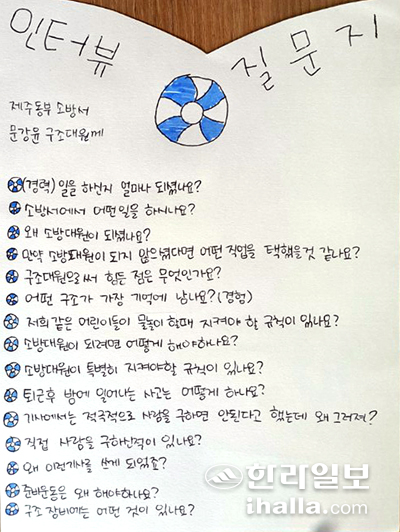 인터뷰 질문지
제주동부 소방서
문강윤 구조대원께
(경력) 일을 하신지 얼마나 되셨나요?
소방서에서 어떤일을 하시나요?
왜 소방대원이 되셨나요?
만약 소방대원이 되지 않으셨다면 어떤 직업을 택했을것 같나요?
구조대원으로써 힘든 점은 무엇인가요?
어떤 구조가 가장 기억에 남나요? (경험)
저희 같은 어린이들이 물놀이 할때 지켜야 할 규칙이 있나요?
소방대원이 되려면 어떻게 해야하나요?
소방대원이 특별히 지켜야할 규칙이 있나요?
퇴근후 밤에 일어나는 사고는 어떻게 하나요?
기사에서는 적극적으로 사람을 구하면 안된다고 했는데 왜 그러져?
직접 사람을 구하신적이 있나요?
왜 이런기사를 쓰게 되었죠?
준비운동은 왜 해야하나요?
구조 장비에는 어떤 것이 있나요?
한라일보
ihalla.com